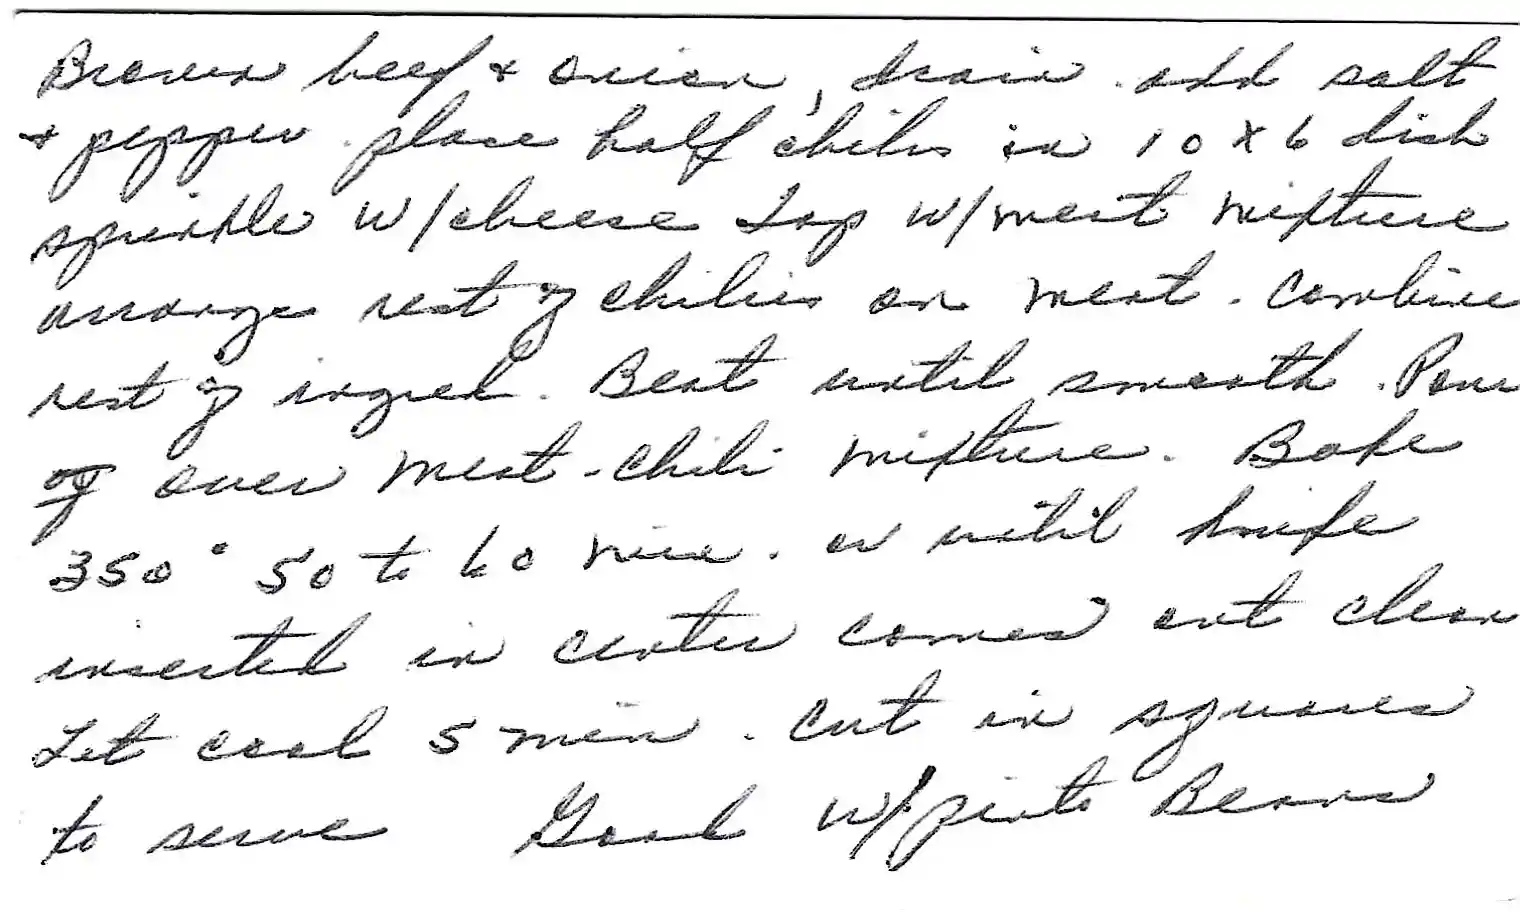 Brown beef & onion, drain. add salt
& pepper. place half chilis in 10 x 6 dish
sprinkle w/cheese Top w/meat mixture
arrange rest of chilies on meat. Combine
rest of ingred. Beat until smooth. Pour
of over meat-chili mixture. Bake
350° 50 to 60 min. or until knife
inserted in center comes out clean
Let cool 5 min. Cut in squares
to serve Good w/pinto Beans